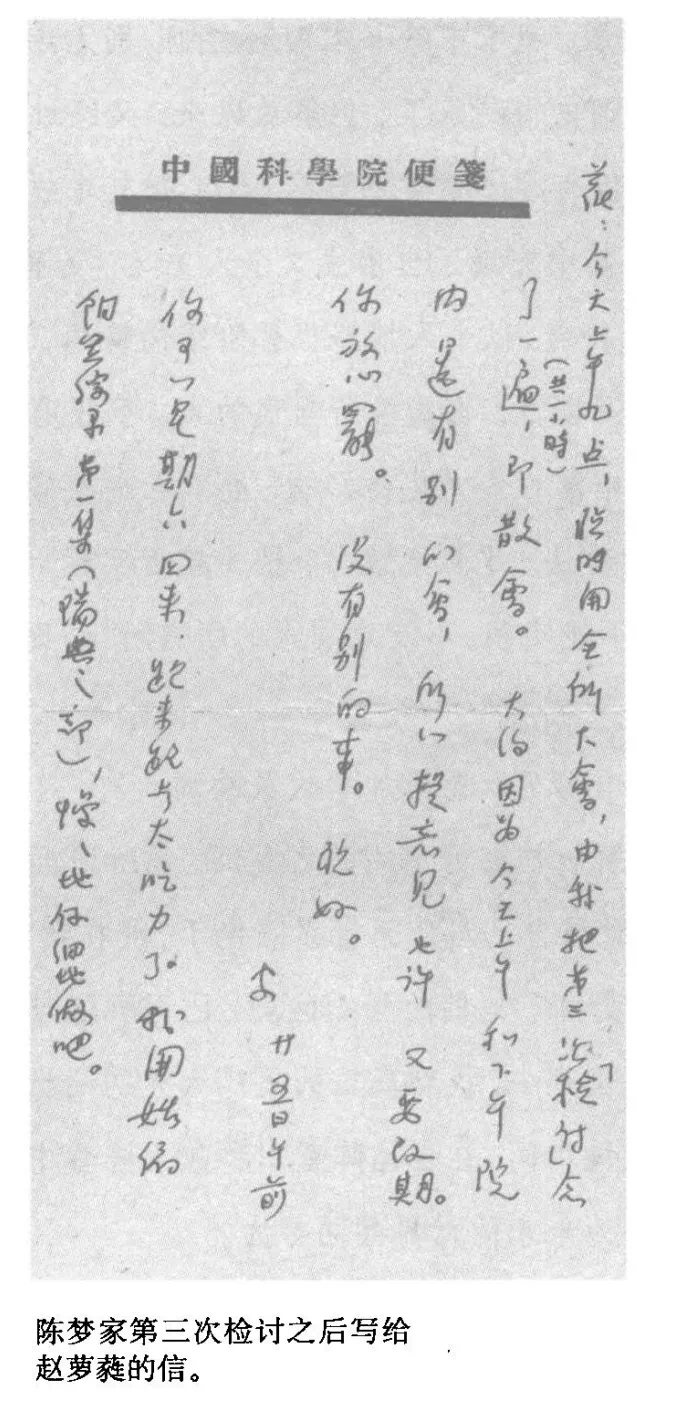 中國科學院便箋
蕤：今天上午九点，临时開全所大會，由我把第三次「檢討」念
了一遍（共一小時），即散會。大约因为今天上午和下午院
内還有别的會，所以提意见也许又要改期。
你放心罷。没有别的事。祝好。
家 廿五日午前
你可以星期六回来，跑来跑去太吃力了。我開始编
铜器综录第一集（瑞典之部），慢慢地仔细地做吧。
陈梦家第三次检讨之后写给
赵萝蕤的信。